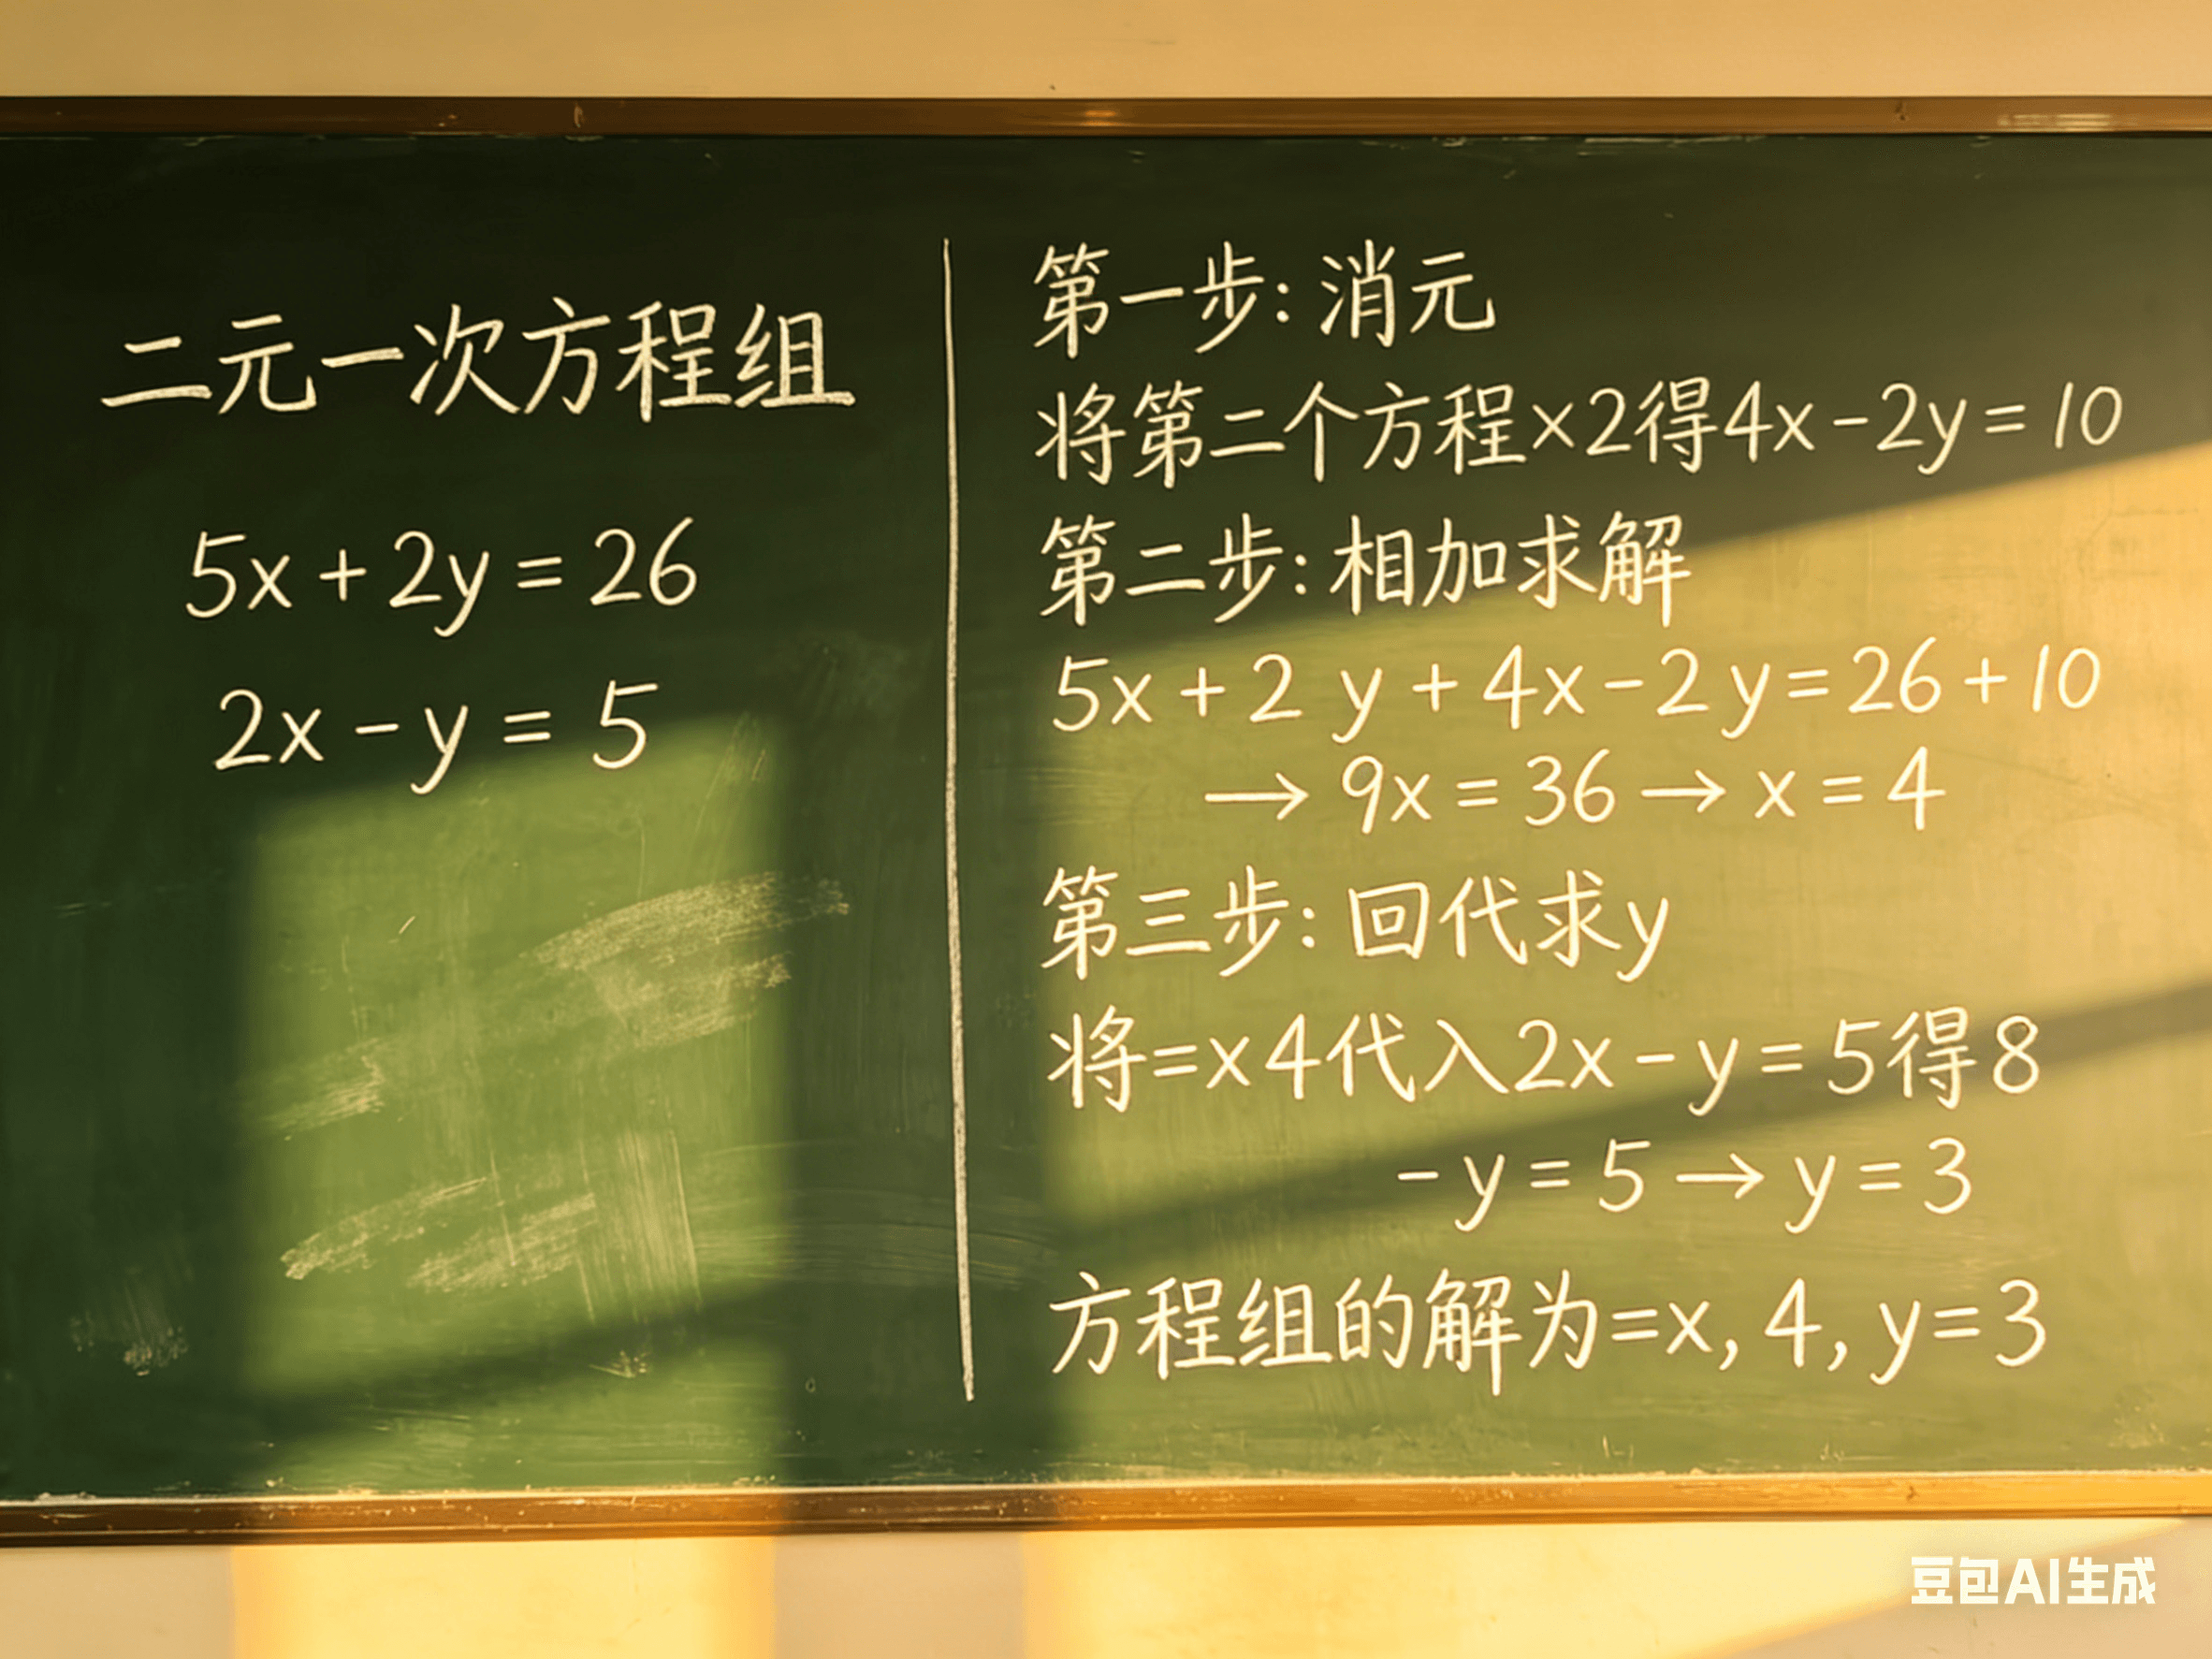 二元一次方程组
5x + 2y = 26
2x - y = 5
第一步: 消元
将第二个方程×2得4x - 2y = 10
第二步: 相加求解
5x + 2 y + 4x - 2 y = 26 + 10
→ 9x = 36 → x = 4
第三步: 回代求y
将=x 4代入2x - y = 5得8
- y = 5 → y = 3
方程组的解为=x, 4, y=3
豆包AI生成